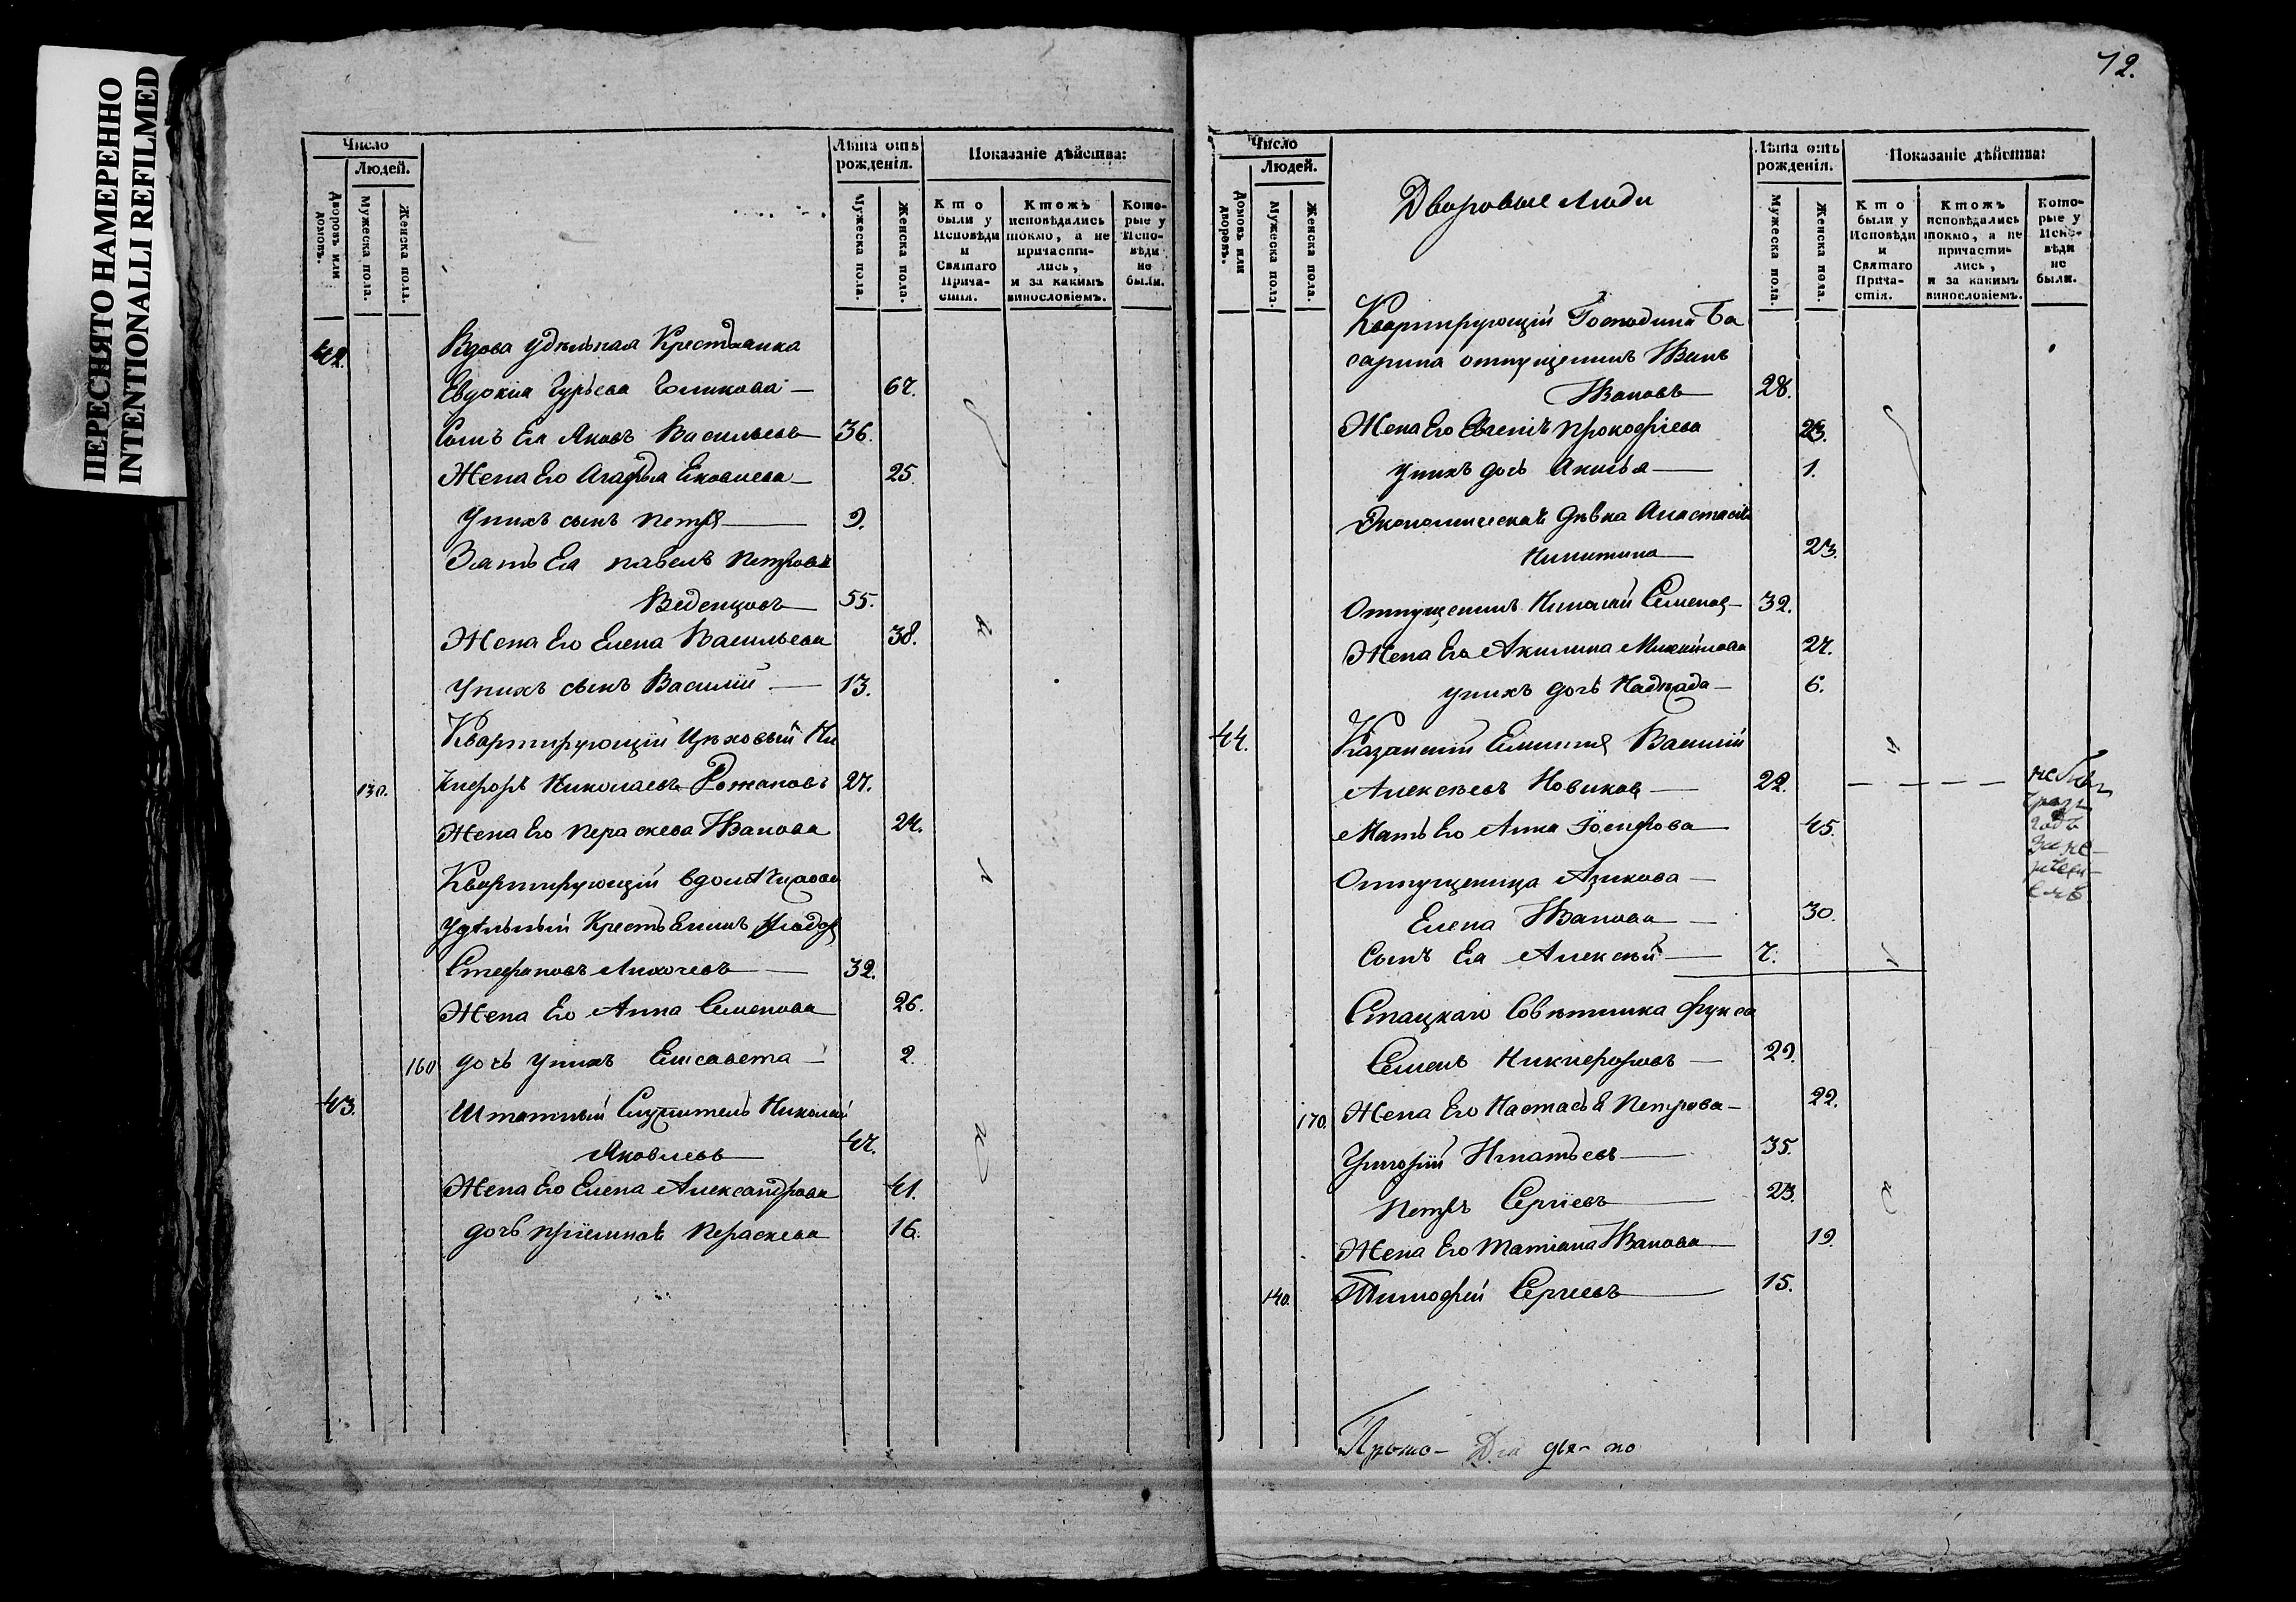 ПЕРЕСНЯТО НАМЕРЕННО
INTENTIONALLI REFILMED
Число
Людей.
Дворовъ или домовъ.
Мужеска пола.
Женска пола.
Лѣта отъ рожденія.
Мужеска пола.
Женска пола.
Показаніе дѣйства:
Кто были у Исповѣди и Святаго Причастія.
Ктожъ исповѣдались токмо, а не причастились, и за какимъ винословіемъ.
Которые у Исповѣди не были.
42. Вдова удѣльная Крестьянка
Евдокия Гурьева Голикова 67.
Сынъ Ея Яковъ Васильевъ 36.
Жена Его Агафья Яковлева 25.
У нихъ сынъ Петръ 9.
Зять Ея Павелъ Петровъ
Веденцовъ 55.
Жена Его Елена Васильева 38.
У нихъ сынъ Василій 13.
Квартирующій Цѣховый Ни
130. кифоръ Николаевъ Рожановъ 27.
Жена Его Пераскева Иванова 24.
Квартирующій
Удѣльный Крестьянинъ
Стефановъ Лихачевъ 32.
Жена Его Анна Семенова 26.
160 дочь у нихъ Елисавета 2.
43. Штатный Служитель Николай
Яковлевъ 47.
Жена Его Елена Александрова 41.
дочь пріемная Пераскева 16.
12.
Число
Людей.
Домовъ или дворовъ.
Мужеска пола.
Женска пола.
Дворовые люди
Лѣта отъ рожденія.
Мужеска пола.
Женска пола.
Показаніе дѣйства:
Кто были у Исповѣди и Святаго Причастія.
Ктожъ исповѣдались токмо, а не причастились, и за какимъ винословіемъ.
Которые у Исповѣди не были.
Квартирующій Господина Ба
сарина отпущенникъ Иванъ
Ивановъ 28.
Жена Его Прокофіева 23.
у нихъ дочь Акилина 1.
Экономическая дѣвка Анастасія
Никитина 23.
Отпущенникъ Николай Семенов 32.
Жена Его Акилина Михайлова 27.
у нихъ дочь Надежда 6.
44. Казанский Василий
Алексѣевъ Новиков 22. не был
Мать Его Анна Іосифова 45.
Отпущеница Азикова
Елена Иванова 30.
Сынъ Ея Алексѣй 7.
Стацкаго Совѣтника Фукса
Семенъ Никифоровъ 29.
170. Жена Его Настасья Петрова 22.
Григорій Игнатьевъ 35.
Петръ Сергіевъ 23.
Жена Его Татіана Иванова 19.
140. Тимофей Сергиевъ 15.